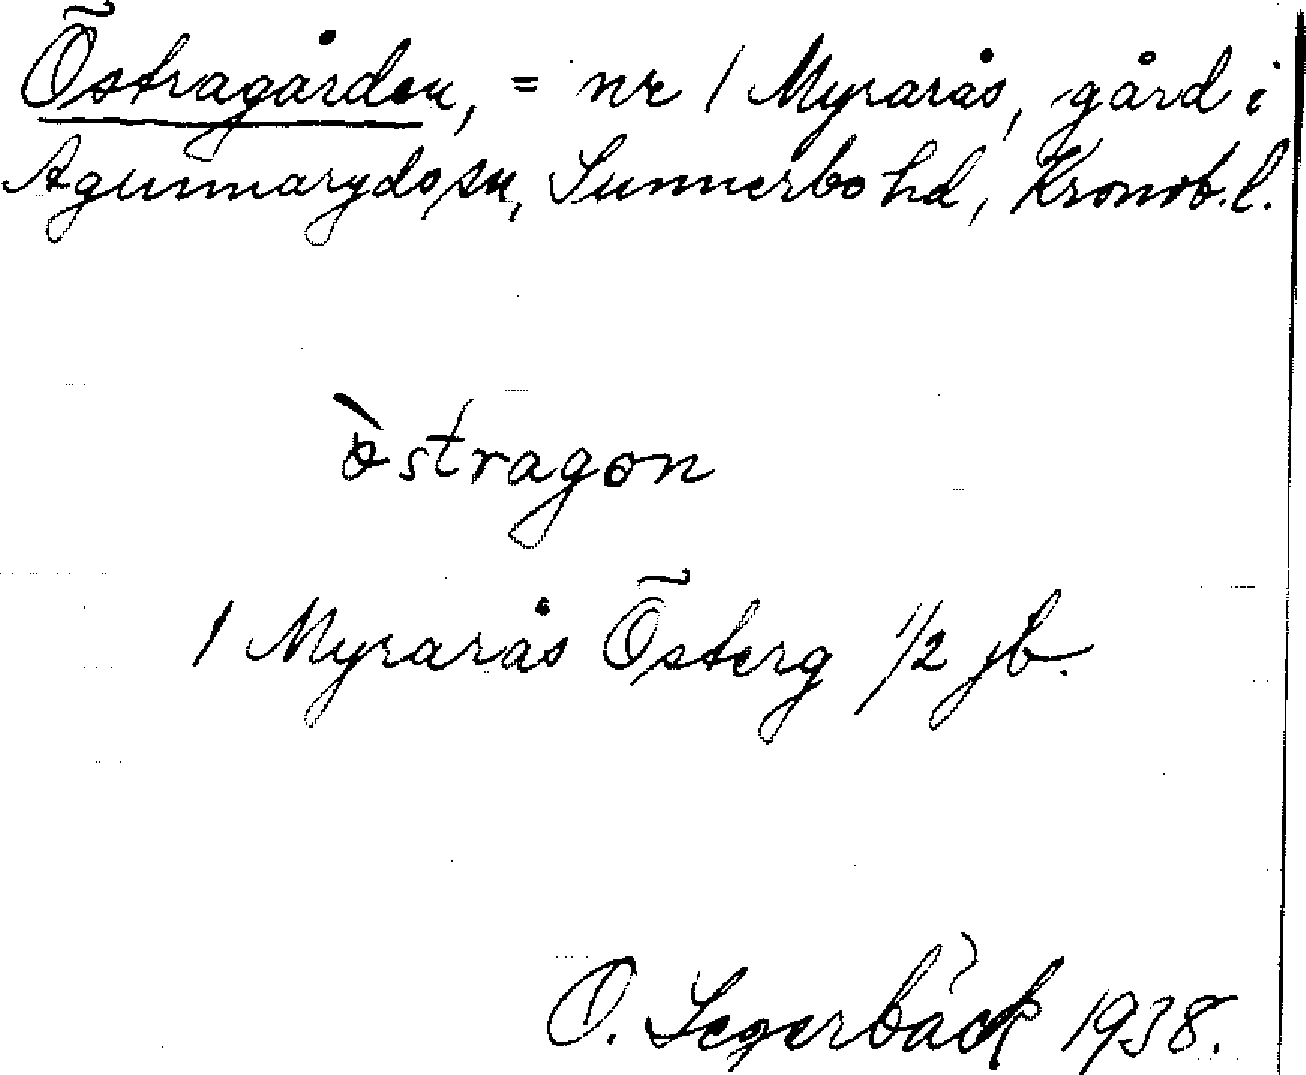 Östragården, = nr 1 Myrarås, gård i
Agunnaryds sn, Sunnerbo hd, Kronob. l.
östragon
1 Myrarås Österg 1/2 jb.
O. Segerbäck 1938.